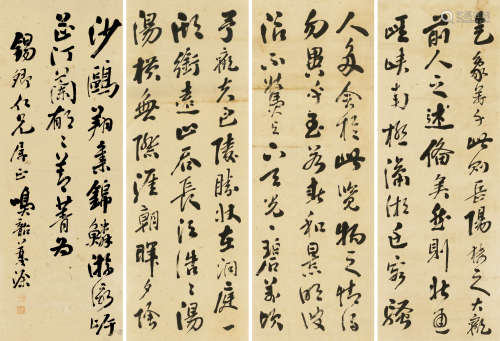 氣象萬千此則岳陽樓之大觀
前人之述備矣然則北通
巫峽南極瀟湘遷客騷
人多會於此覽物之情得
勿異乎至若春和景明波
瀾不驚上下天光一碧萬頃
予觀夫巴陵勝狀在洞庭一
湖銜遠山吞長江浩浩湯
湯橫無際涯朝暉夕陰
沙鷗翔集錦鱗游泳岸
芷汀蘭郁郁青青為
錫卿仁兄屬正鳴韶